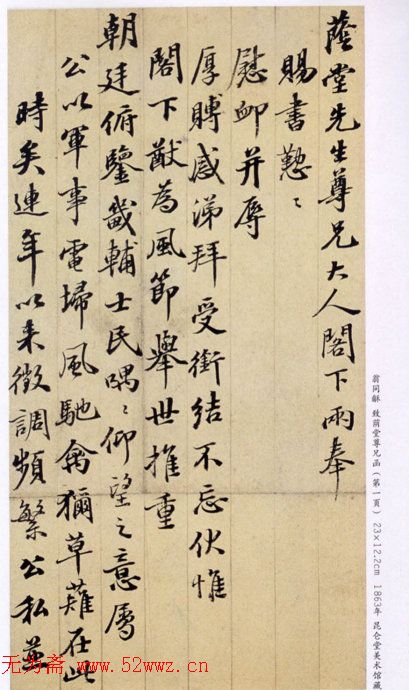 蔭堂先生尊兄大人閣下兩奉
賜書懃〻
慰卹并辱
厚賻感涕拜受銜結不忘伏惟
閣下猷為風節舉世推重
朝廷俯鑒畿輔士民喁〻仰望之意屬
公以軍事電埽風馳禽獮草薙在此
時矣連年以來徵調頻繁公私並
翁同龢 致荫堂尊兄函(第一页) 23×12.2cm 1863年 昆仑堂美术馆藏
无为斋 www.52wwz.cn 无为斋